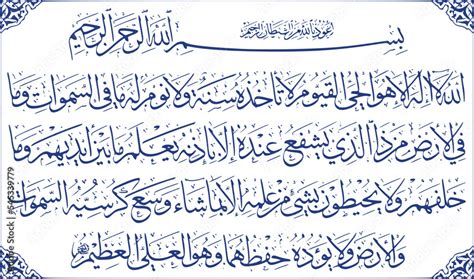 أعوذ بالله من الشيطان الرجيم
بسم الله الرحمن الرحيم
الله لا إله إلا هو الحي القيوم لا تأخذه سنة ولا نوم له ما في السموات وما
في الأرض من ذا الذي يشفع عنده إلا بإذنه يعلم ما بين أيديهم وما
خلفهم ولا يحيطون بشيء من علمه إلا بما شاء وسع كرسيه السموات
والأرض ولا يؤده حفظهما وهو العلي العظيم
Adobe Stock | #646339779